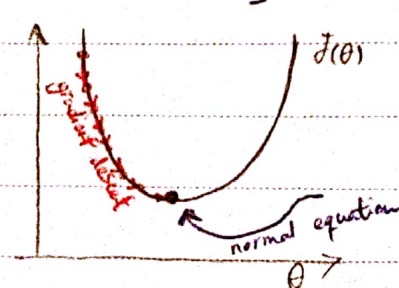 J(θ)
gradient descent
normal equation
θ